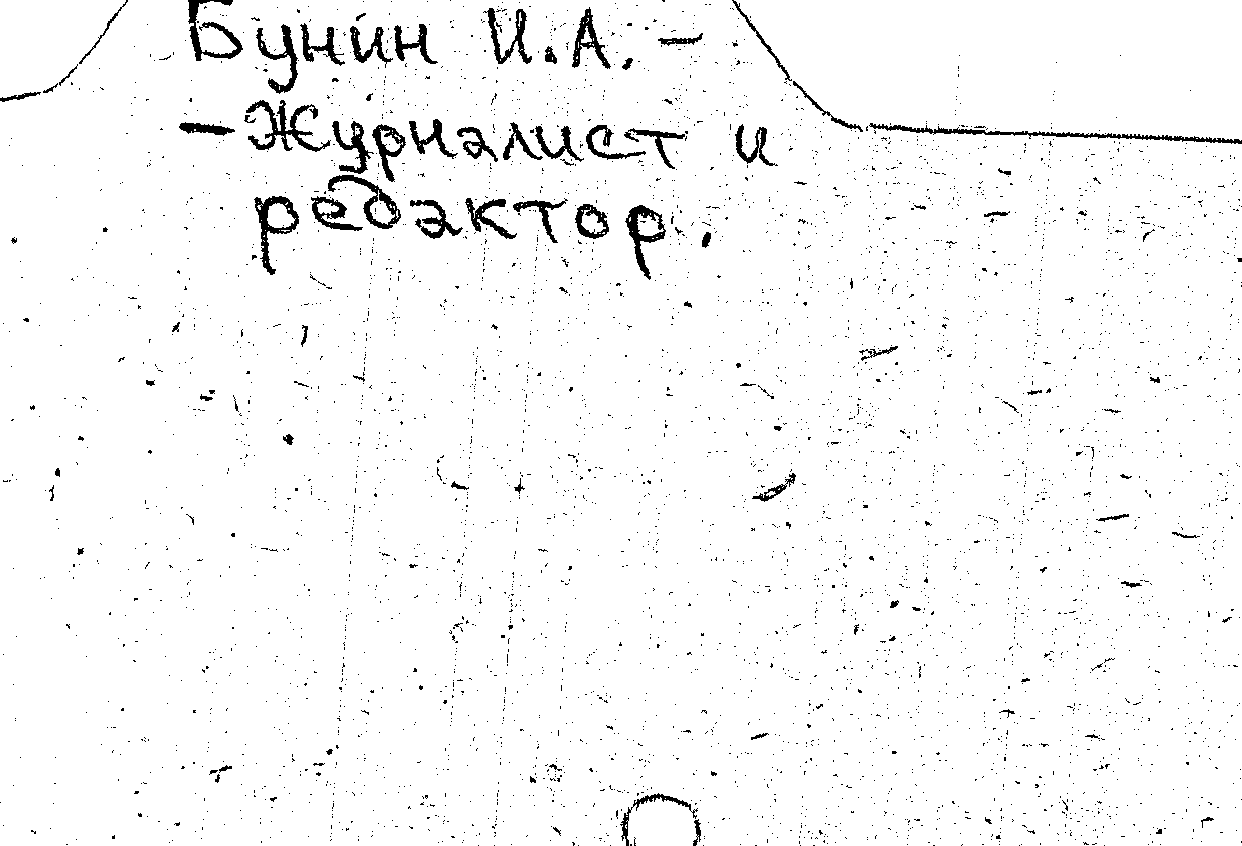 Бунин И.А. –
– Журналист и
редактор.